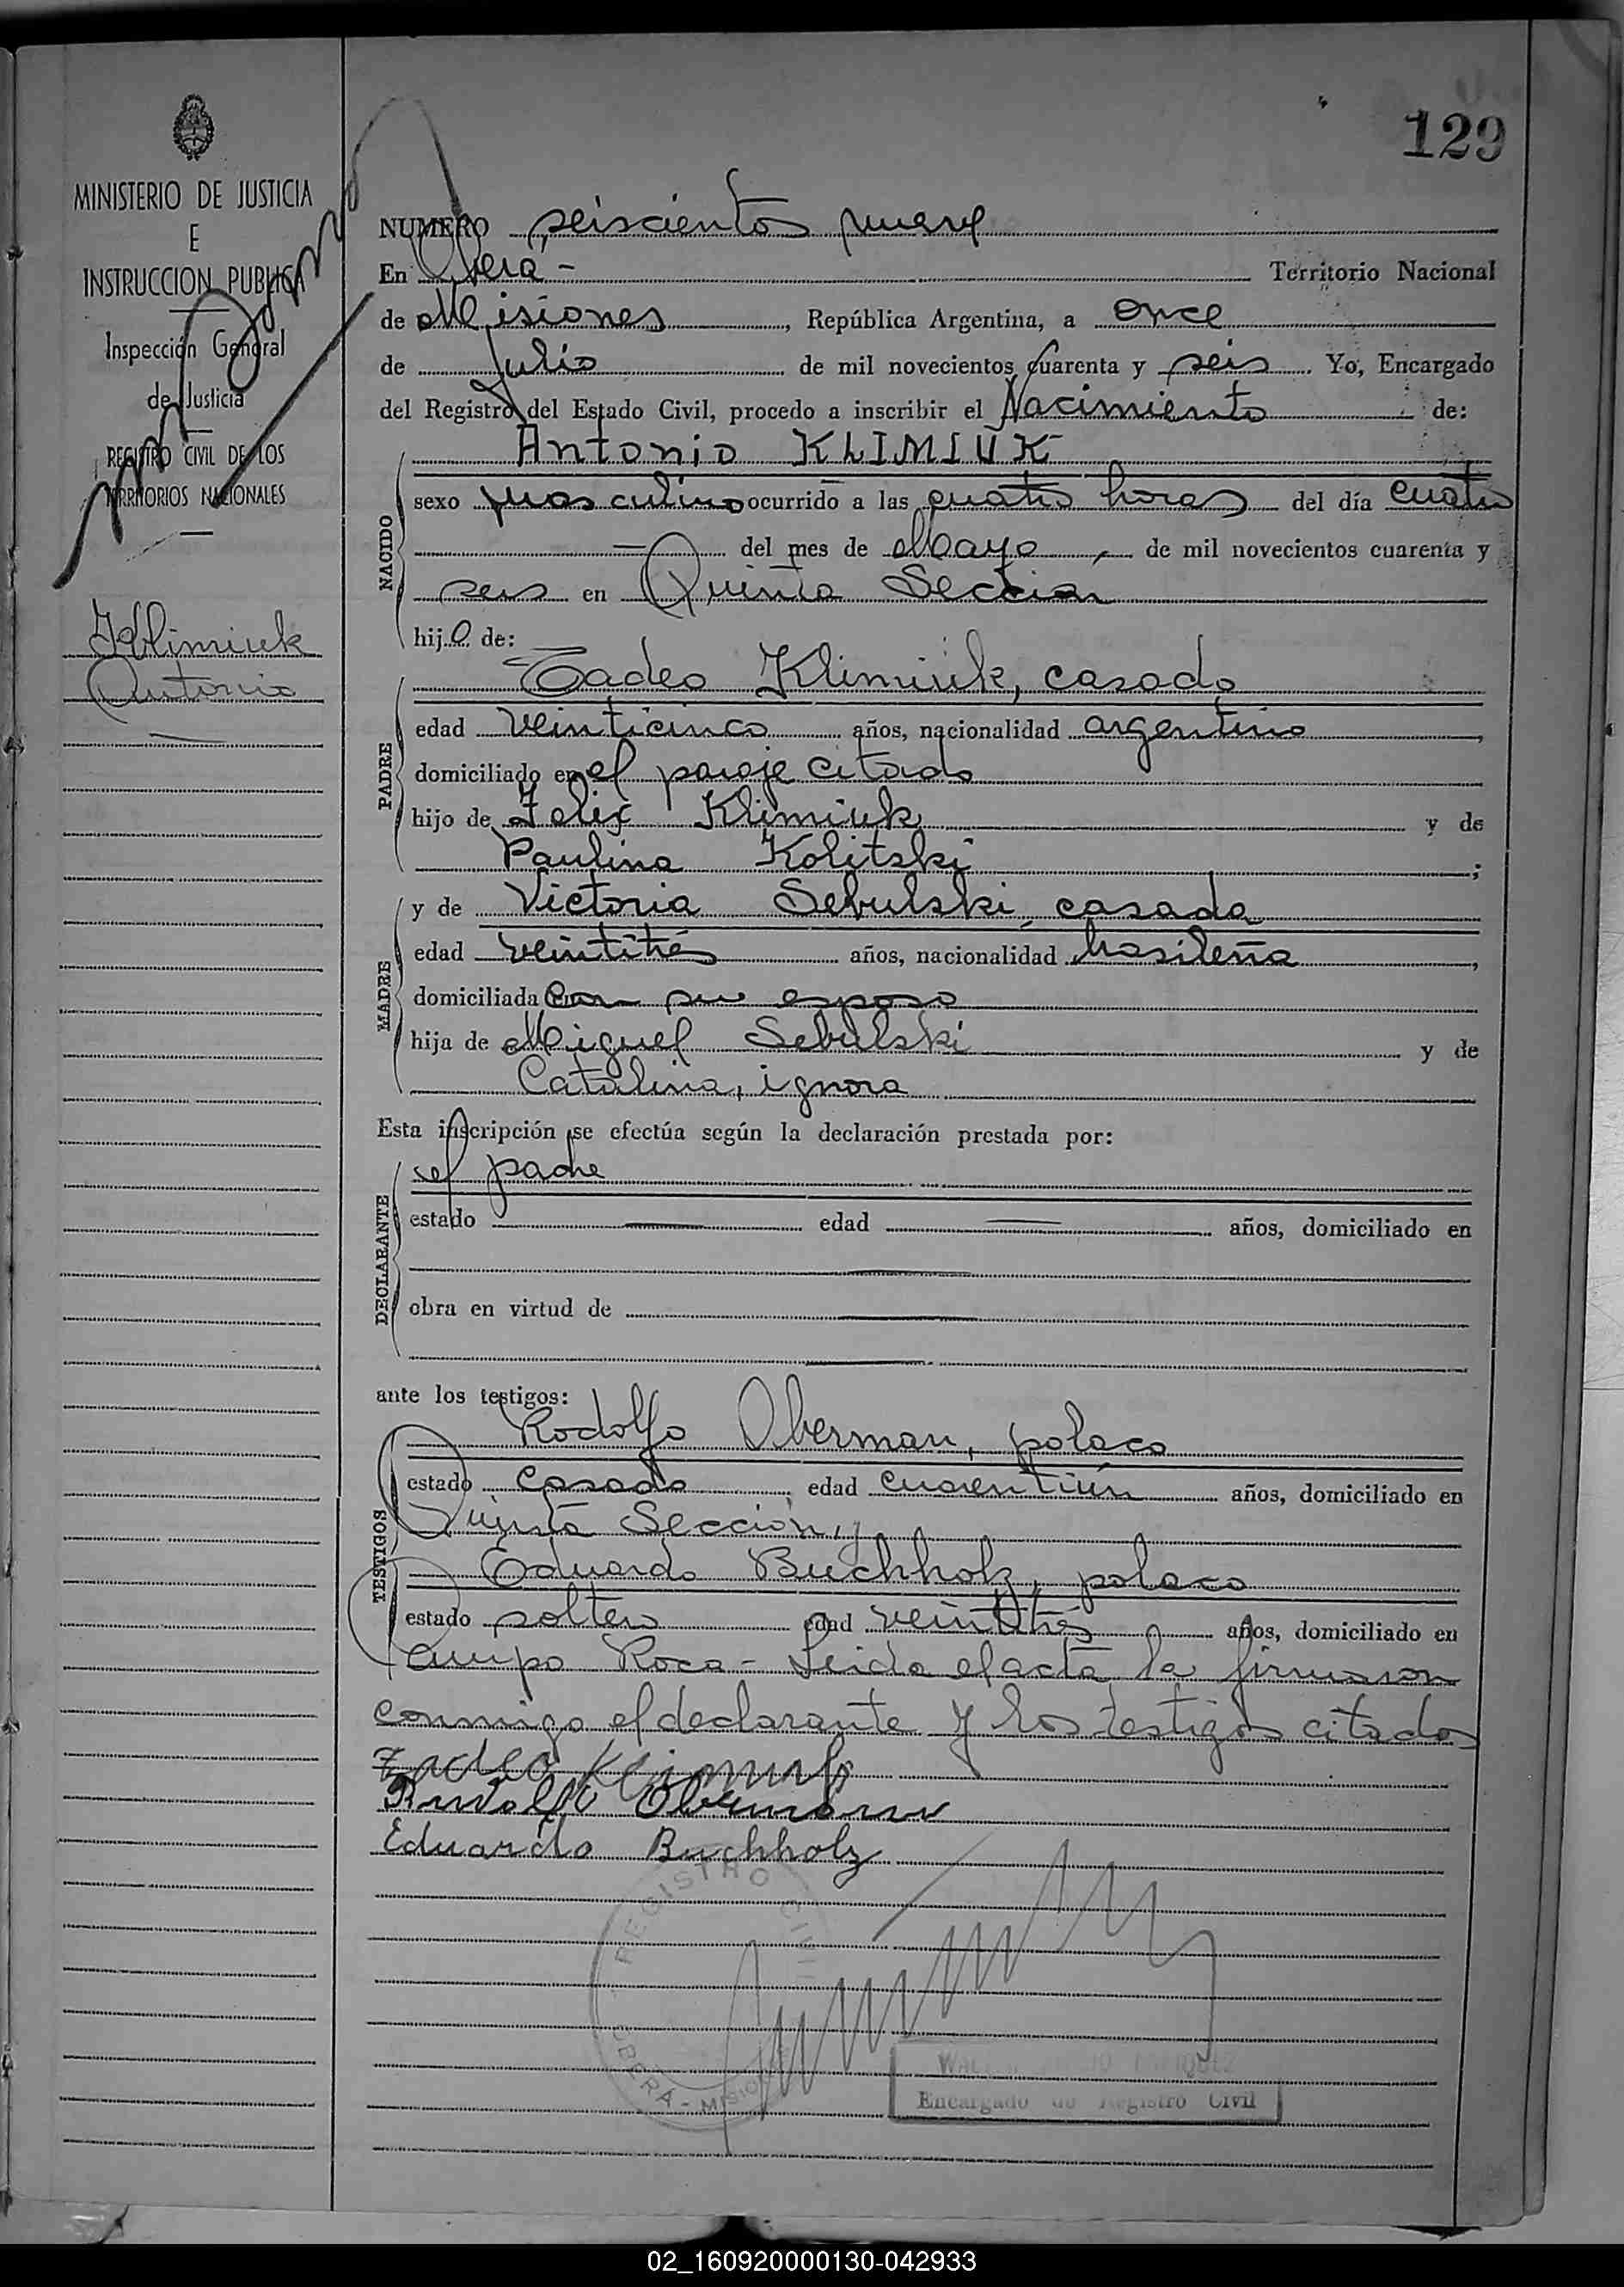 129
MINISTERIO DE JUSTICIA
E
INSTRUCCION PUBLICA
Inspección General
de Justicia
REGISTRO CIVIL DE LOS
TERRITORIOS NACIONALES
Klimiuk
Antonio
NUMERO seiscientos nueve
En Oberá - Territorio Nacional
de Misiones, República Argentina, a once
de Julio de mil novecientos cuarenta y seis. Yo, Encargado
del Registro del Estado Civil, procedo a inscribir el Nacimiento de:
Antonio KLIMIUK
NACIDO
sexo masculino ocurrido a las cuatro horas del día cuatro
del mes de Mayo, de mil novecientos cuarenta y
seis en Quinta Sección
hijo de:
PADRE
Tadeo Klimiuk, casado
edad veinticinco años, nacionalidad argentino,
domiciliado en el paraje citado
hijo de Felix Klimiuk y de
Paulina Kolitski;
MADRE
y de Victoria Sebulski, casada
edad veintitrés años, nacionalidad brasileña,
domiciliada con su esposo
hija de Miguel Sebulski y de
Catalina, ignora
Esta inscripción se efectúa según la declaración prestada por:
DECLARANTE
el padre
estado — edad — años, domiciliado en
obra en virtud de
ante los testigos:
TESTIGOS
Rodolfo Oberman, polaco
estado casado edad cuarentiún años, domiciliado en
Quinta Sección, y
Eduardo Buchholz, polaco
estado soltero edad veintitrés años, domiciliado en
Campo Roca - Leida el acta la firmaron
conmigo el declarante y los testigos citados
Tadeo Klimiuk
Rudolf Obermann
Eduardo Buchholz
REGISTRO CIVIL
OBERA - MISIONES
Encargado de Registro Civil
02_160920000130-042933